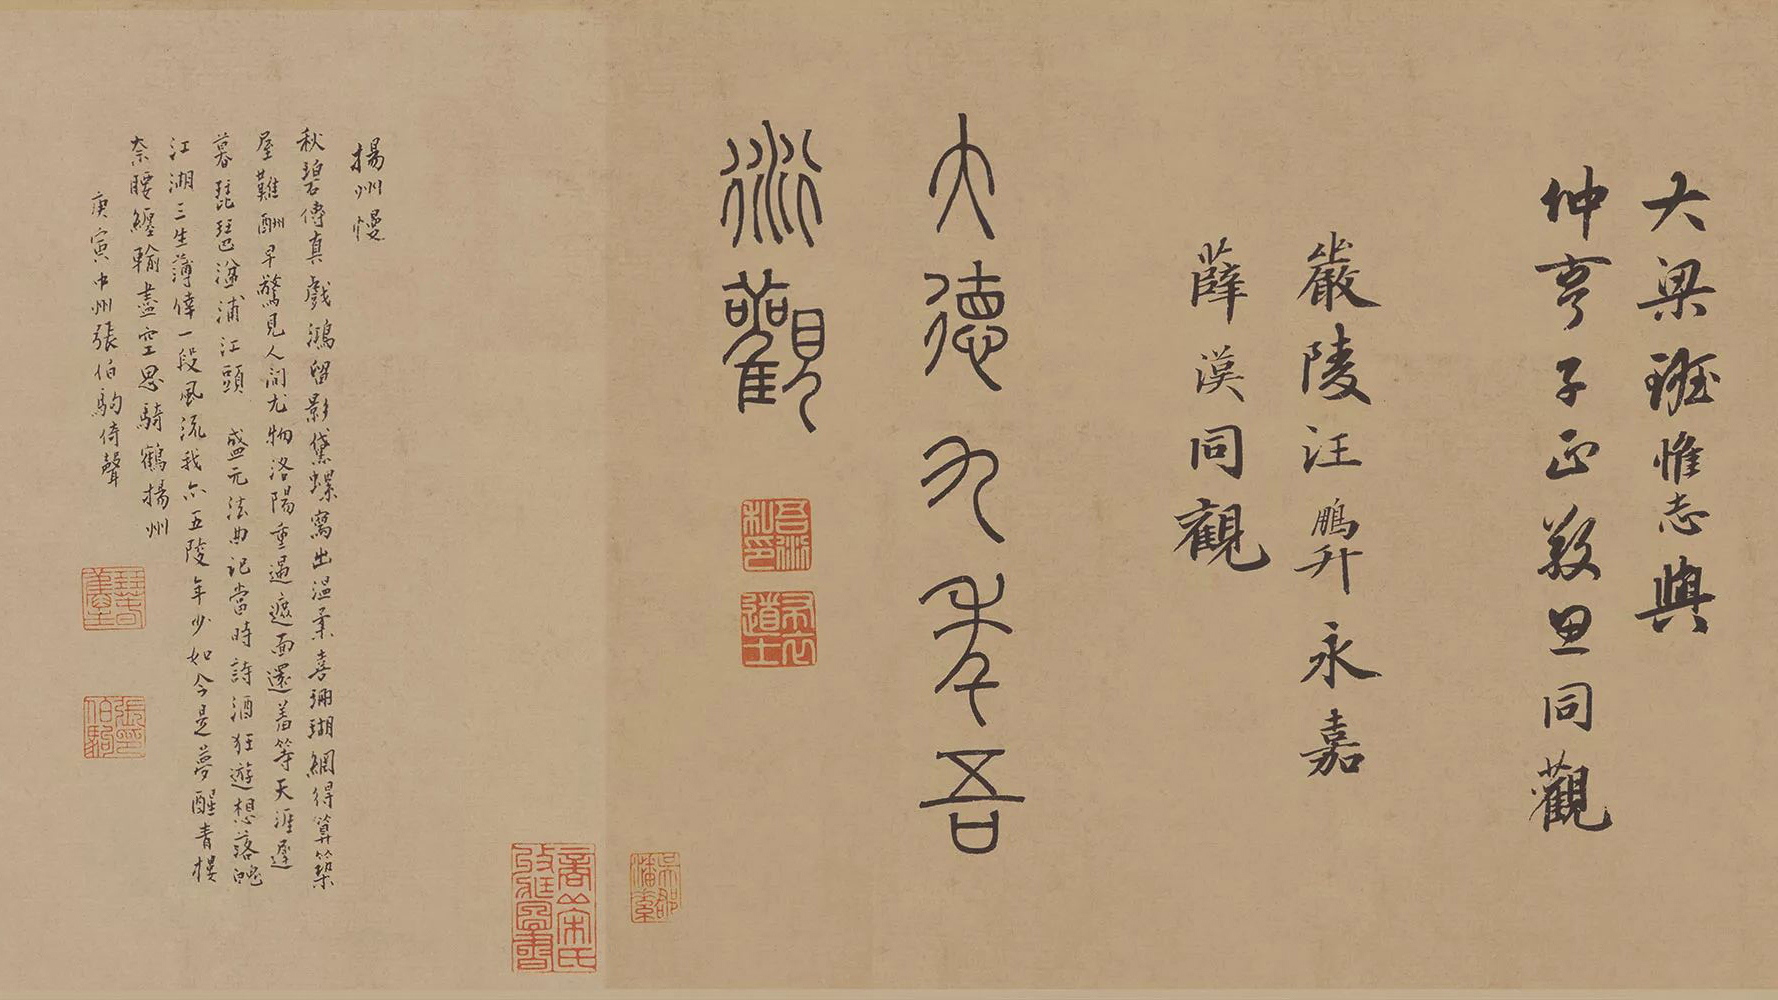 大梁班惟志與
仲亨子正同觀
嚴陵汪鵬升永嘉
薛漢同觀
大德九年吾
衍觀
吾衍私印
布衣道士
吳郡潘素
揚州慢
秋碧傳真戲鴻留影黛螺寫出溫柔喜珊瑚網得算築
屋難酬早驚見人間尤物洛陽重遇遮面還羞等天涯遲
暮琵琶湓浦江頭 盛元法曲記當時詩酒狂遊想落魄
江湖三生薄倖一段風流我亦五陵年少如今是夢醒青樓
奈腰纏輸盡空思騎鶴揚州
庚寅中州張伯駒倚聲
張伯駒印